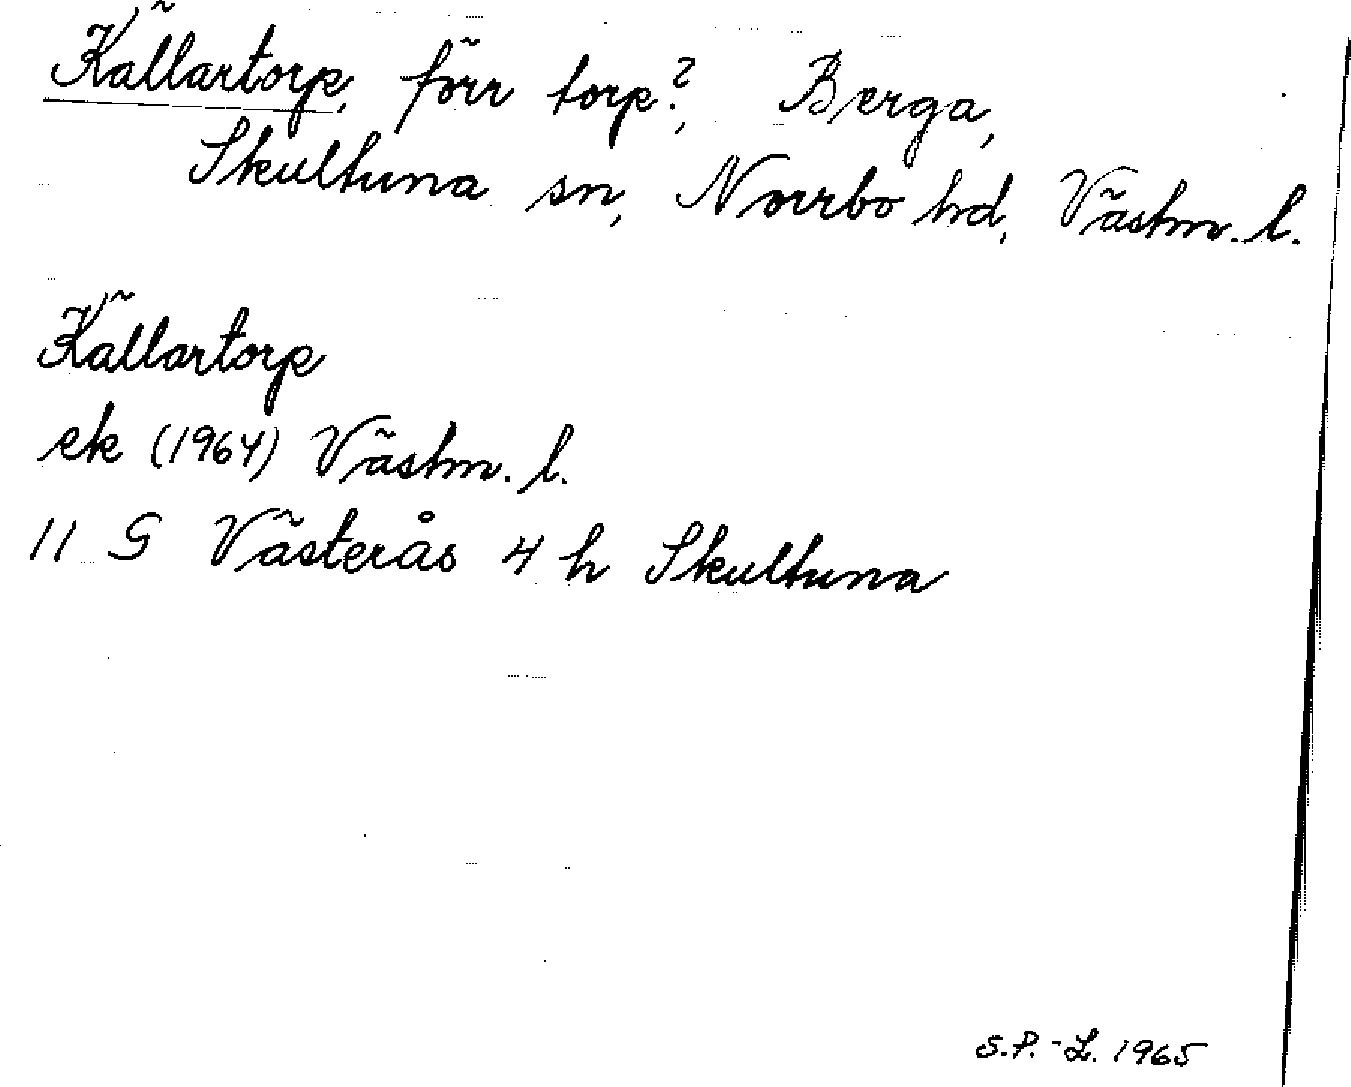 Källartorp, förr torp?, Berga,
Skultuna sn, Norrbo hd, Västm. l.
Källartorp
ek (1964) Västm. l.
11 G Västerås 4 h Skultuna
S.P.-L. 1965